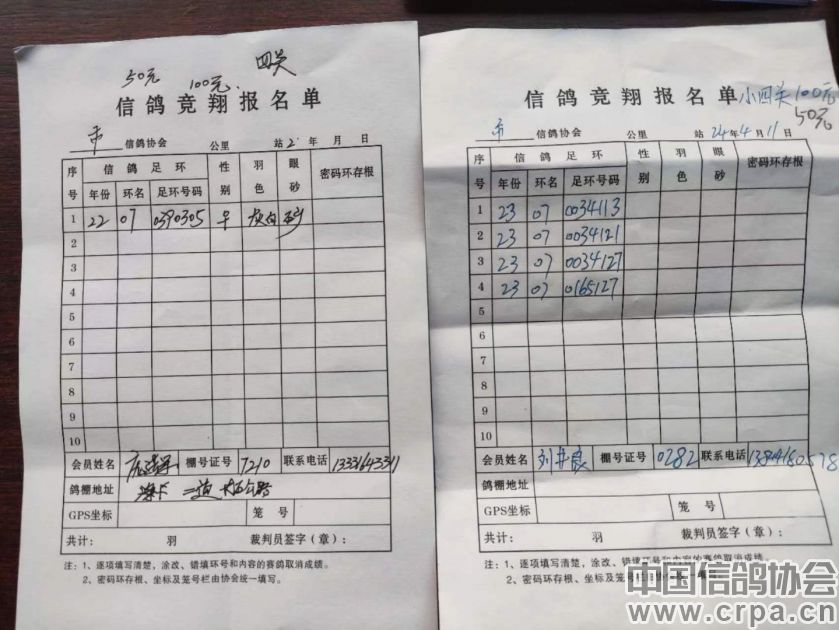 50元 100元 四关
信鸽竞翔报名单
市 信鸽协会 公里 站2 年 月 日
序号 信鸽足环 性别 羽色 眼砂 密码环存根
年份 环名 足环号码
1 22 07 0390305 灰白 砂
2
3
4
5
6
7
8
9
10
会员姓名 棚号证号 7210 联系电话 13331643311
鸽棚地址 二道
GPS坐标 笼号
共计： 羽 裁判员签字（章）：
注：1、逐项填写清楚，涂改、错填环号和内容的赛鸽取消成绩。
2、密码环存根、坐标及笼号栏由协会统一填写。
信鸽竞翔报名单 小四关100元
50元
市 信鸽协会 公里 站 24年4月11日
序号 信鸽足环 性别 羽色 眼砂 密码环存根
年份 环名 足环号码
1 23 07 0034113
2 23 07 0034121
3 23 07 0034127
4 23 07 0165127
5
6
7
8
9
10
会员姓名 刘井良 棚号证号 0282 联系电话
鸽棚地址
GPS坐标 笼号
共计： 羽 裁判员签字（章）：
注：1、逐项填写清楚，涂改、错填环号和内容的赛鸽取消成绩。
2、密码环存根、坐标及笼号栏由协会统一填写。
中国信鸽协会
www.crpa.cn